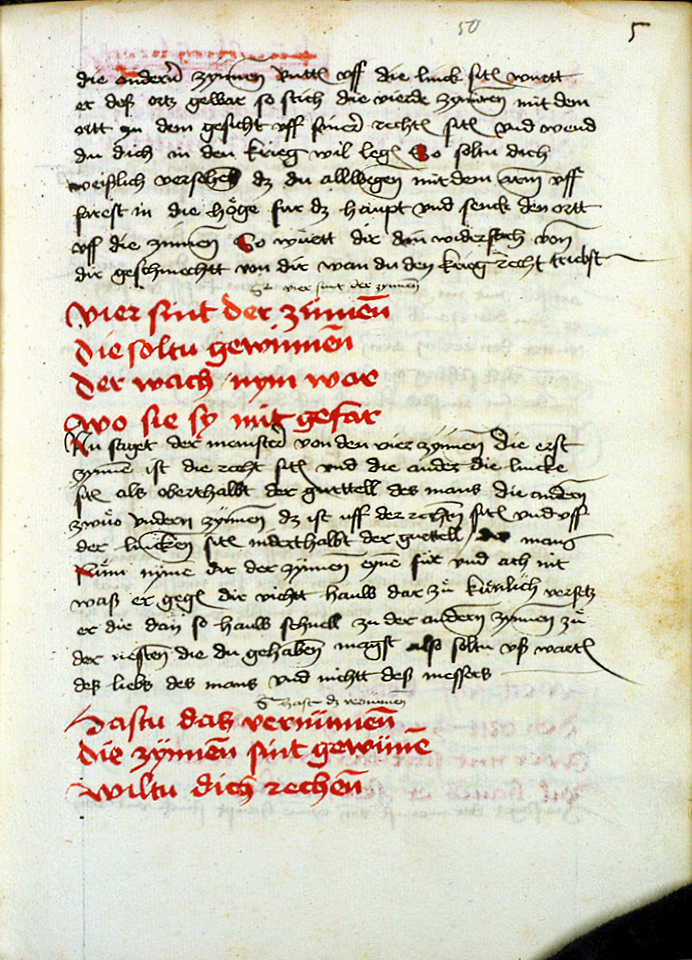 50
5
die andern zymmen Kuttl uff die linck sitl wurtt
er deß ortz gewar so stich die vierde zymmen mit dem
ortt zu dem gesicht uff siner rechtl sitl vnd wend
du dich in den krieg wil legl So soltu dich
weißlich versehen dz du allwegen mit dem arm uff
farest in die höge fur dz haupt vnd senck den ortt
uff die zinnen So wurtt dir din widersach von
dir geschwechtt von dir wan du den krieg recht tribst
Gl vier sint der zynnen
vier sint der zinnen
die soltu gewinnen
der wach nym war
wo sie sy mit gefar
Nu saget der maister von den vier zynnen die erst
zynne ist die recht sitl vnd die ander die lincke
sitl als oberthalbt der gurttell des mans die andern
zwuo vndern zynnen dz ist uff der rechten sitl vnd uff
der lincken sitl inderthalbt der gurttell des mans
nyme dir der zynnen eyne für vnd ach nit
waß er gegl dir vichtt hauw dar zu kunlich versetz
er dir dan so hauw schnell zu der andern zynnen zu
der nesten die du gehaben magst also soltu uß wartl
deß liebs des mans vnd nichtt deß messers
Gl Hastu dz vernummen
Hastu das vernummen
die zynnen sint gewunne
wiltu dich rechen